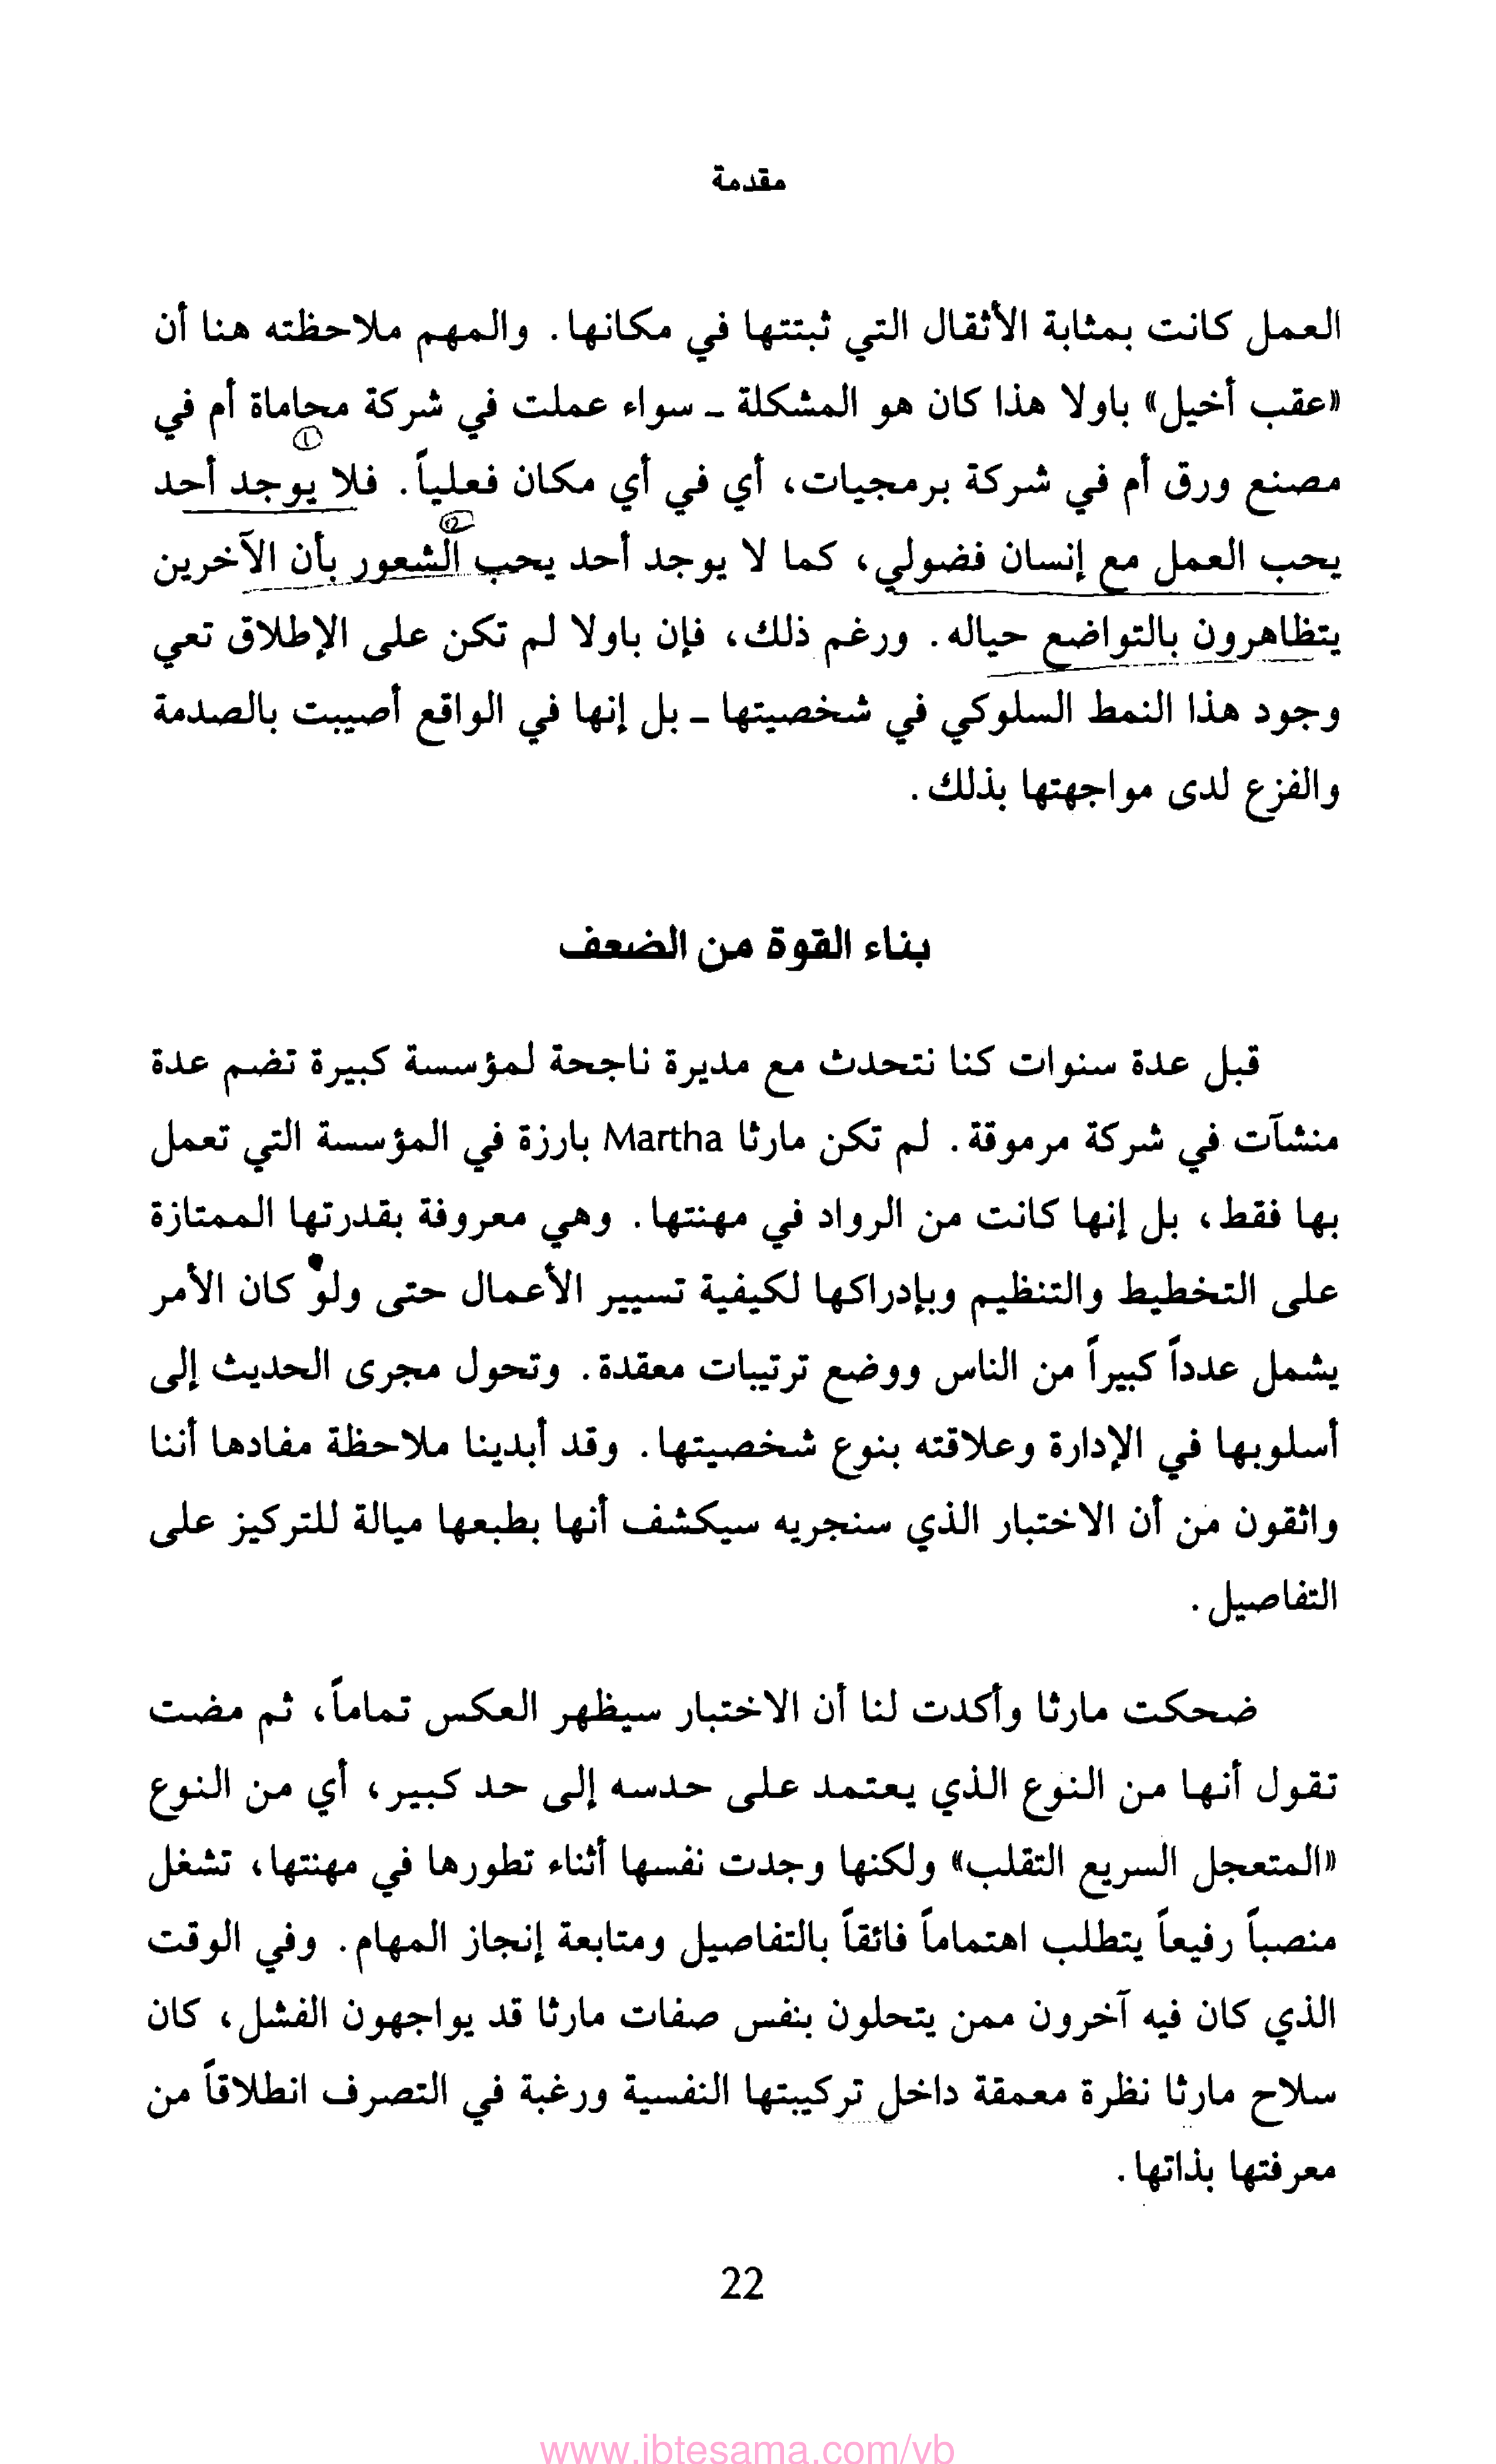 مقدمة
العمل كانت بمثابة الأثقال التي ثبتتها في مكانها. والمهم ملاحظته هنا أن
«عقب أخيل» باولا هذا كان هو المشكلة - سواء عملت في شركة محاماة أم في
①
مصنع ورق أم في شركة برمجيات، أي في أي مكان فعلياً. فلا يوجد أحد
②
يحب العمل مع إنسان فضولي، كما لا يوجد أحد يحب الشعور بأن الآخرين
يتظاهرون بالتواضع حياله. ورغم ذلك، فإن باولا لم تكن على الإطلاق تعي
وجود هذا النمط السلوكي في شخصيتها - بل إنها في الواقع أصيبت بالصدمة
والفزع لدى مواجهتها بذلك.
بناء القوة من الضعف
قبل عدة سنوات كنا نتحدث مع مديرة ناجحة لمؤسسة كبيرة تضم عدة
منشآت في شركة مرموقة. لم تكن مارثا Martha بارزة في المؤسسة التي تعمل
بها فقط، بل إنها كانت من الرواد في مهنتها. وهي معروفة بقدرتها الممتازة
على التخطيط والتنظيم وبإدراكها لكيفية تسيير الأعمال حتى ولو كان الأمر
يشمل عدداً كبيراً من الناس ووضع ترتيبات معقدة. وتحول مجرى الحديث إلى
أسلوبها في الإدارة وعلاقته بنوع شخصيتها. وقد أبدينا ملاحظة مفادها أننا
واثقون من أن الاختبار الذي سنجريه سيكشف أنها بطبعها ميالة للتركيز على
التفاصيل.
ضحكت مارثا وأكدت لنا أن الاختبار سيظهر العكس تماماً، ثم مضت
تقول أنها من النوع الذي يعتمد على حدسه إلى حد كبير، أي من النوع
«المتعجل السريع التقلب» ولكنها وجدت نفسها أثناء تطورها في مهنتها، تشغل
منصباً رفيعاً يتطلب اهتماماً فائقاً بالتفاصيل ومتابعة إنجاز المهام. وفي الوقت
الذي كان فيه آخرون ممن يتحلون بنفس صفات مارثا قد يواجهون الفشل، كان
سلاح مارثا نظرة معمقة داخل تركيبتها النفسية ورغبة في التصرف انطلاقاً من
معرفتها بذاتها.
22
www.ibtesama.com/vb